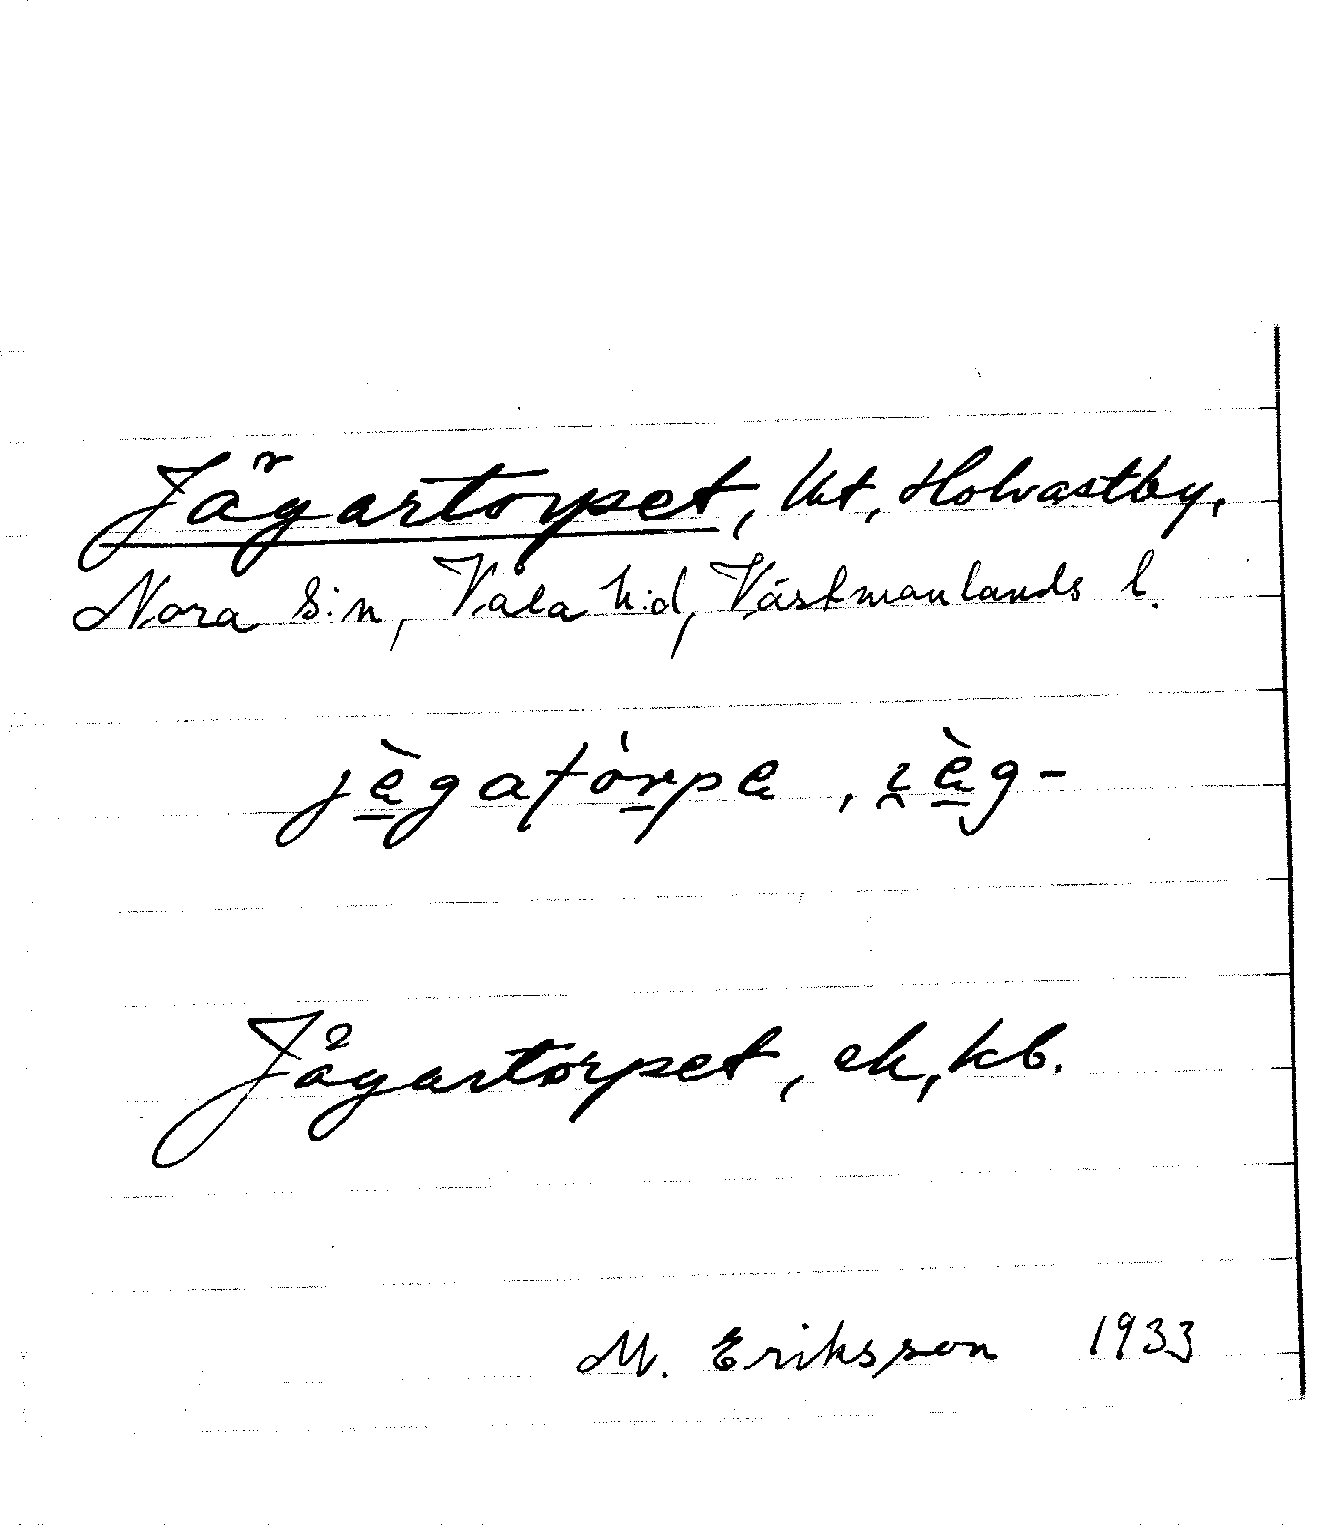 Jägartorpet, lht, Holvastby,
Nora s:n, Våla h:d, Västmanlands l.
jè̠gatór̠pe, ı̯è̠g-
Jägartorpet, ek, kb.
M. Eriksson 1933